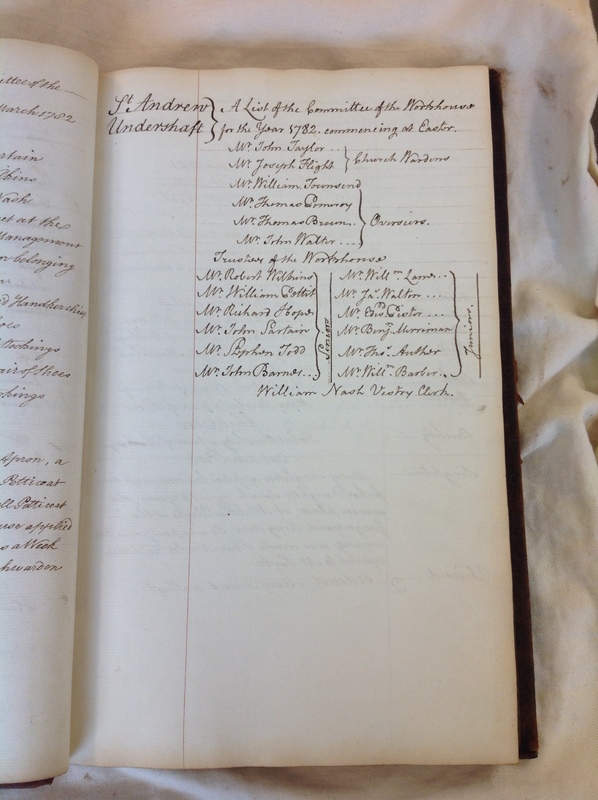 ittee of the
March 1782
artain
Nash
et at the
Management
or belonging
d Handkerchiefs
oes
Stockings
airs of Shoes
kings
Apron, a
Petticoat
ll Petticoat
use applied
s a Week
hwarden
St. Andrew Undershaft
A List of the Committee of the Workhouse
for the Year 1782. commencing at Easter.
Mr. John Taylor ..
Mr. Joseph Flight
Church Wardens
Mr. William Townsend
Mr. Thomas Pomeroy
Mr. Thomas Brown ..
Mr. John Walter ....
Overseers.
Trustees of the Workhouse
Mr. Robert Wilkins
Mr. William Pettit
Mr. Richard Hope
Mr. John Sartain
Mr. Stephen Todd
Mr. John Barnes ...
Seniors
Mr. Willm. Lane ...
Mr. Jas. Walton ...
Mr. Edwd. Pistor ....
Mr. Benjn. Merriman
Mr. Thos. Anther
Mr. Willm. Barber ..
Juniors.
William Nash Vestry Clerk.